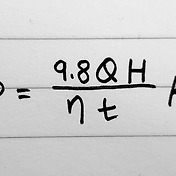 = 9.8QH / ηt